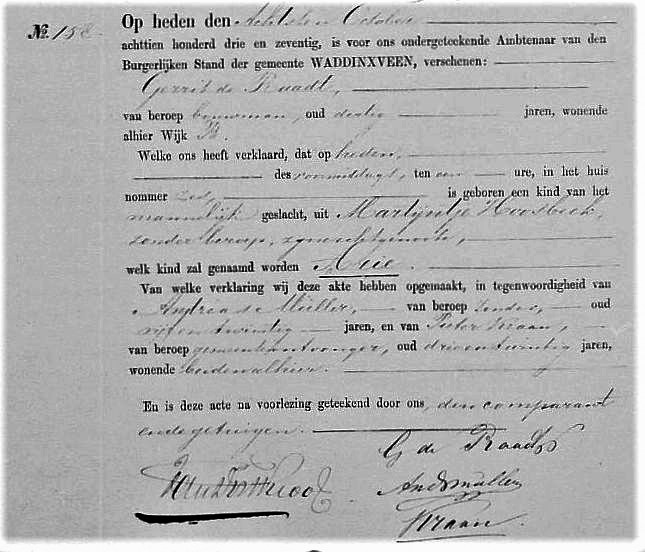 No. 158. Op heden den Achtsten October
achttien honderd drie en zeventig, is voor ons ondergeteekende Ambtenaar van den
Burgerlijken Stand der gemeente WADDINXVEEN, verschenen:
Gerrit de Raadt,
van beroep bouwman, oud dertig jaren, wonende
alhier Wijk B.
Welke ons heeft verklaard, dat op heden,
des voormiddags, ten een ure, in het huis
nommer zes, is geboren een kind van het
mannelijk geslacht, uit Martijntje Hoosbeek,
zonder beroep, zijne echtgenoote,
welk kind zal genaamd worden Arie.
Van welke verklaring wij deze akte hebben opgemaakt, in tegenwoordigheid van
Andreas Muller, van beroep zonder, oud
vijf en twintig jaren, en van Pieter Kraan,
van beroep gemeenteontvanger, oud drie en twintig jaren,
wonende beide alhier.
En is deze acte na voorlezing geteekend door ons, den comparant
en de getuigen.
G de Raadt
And Muller
Kraan.